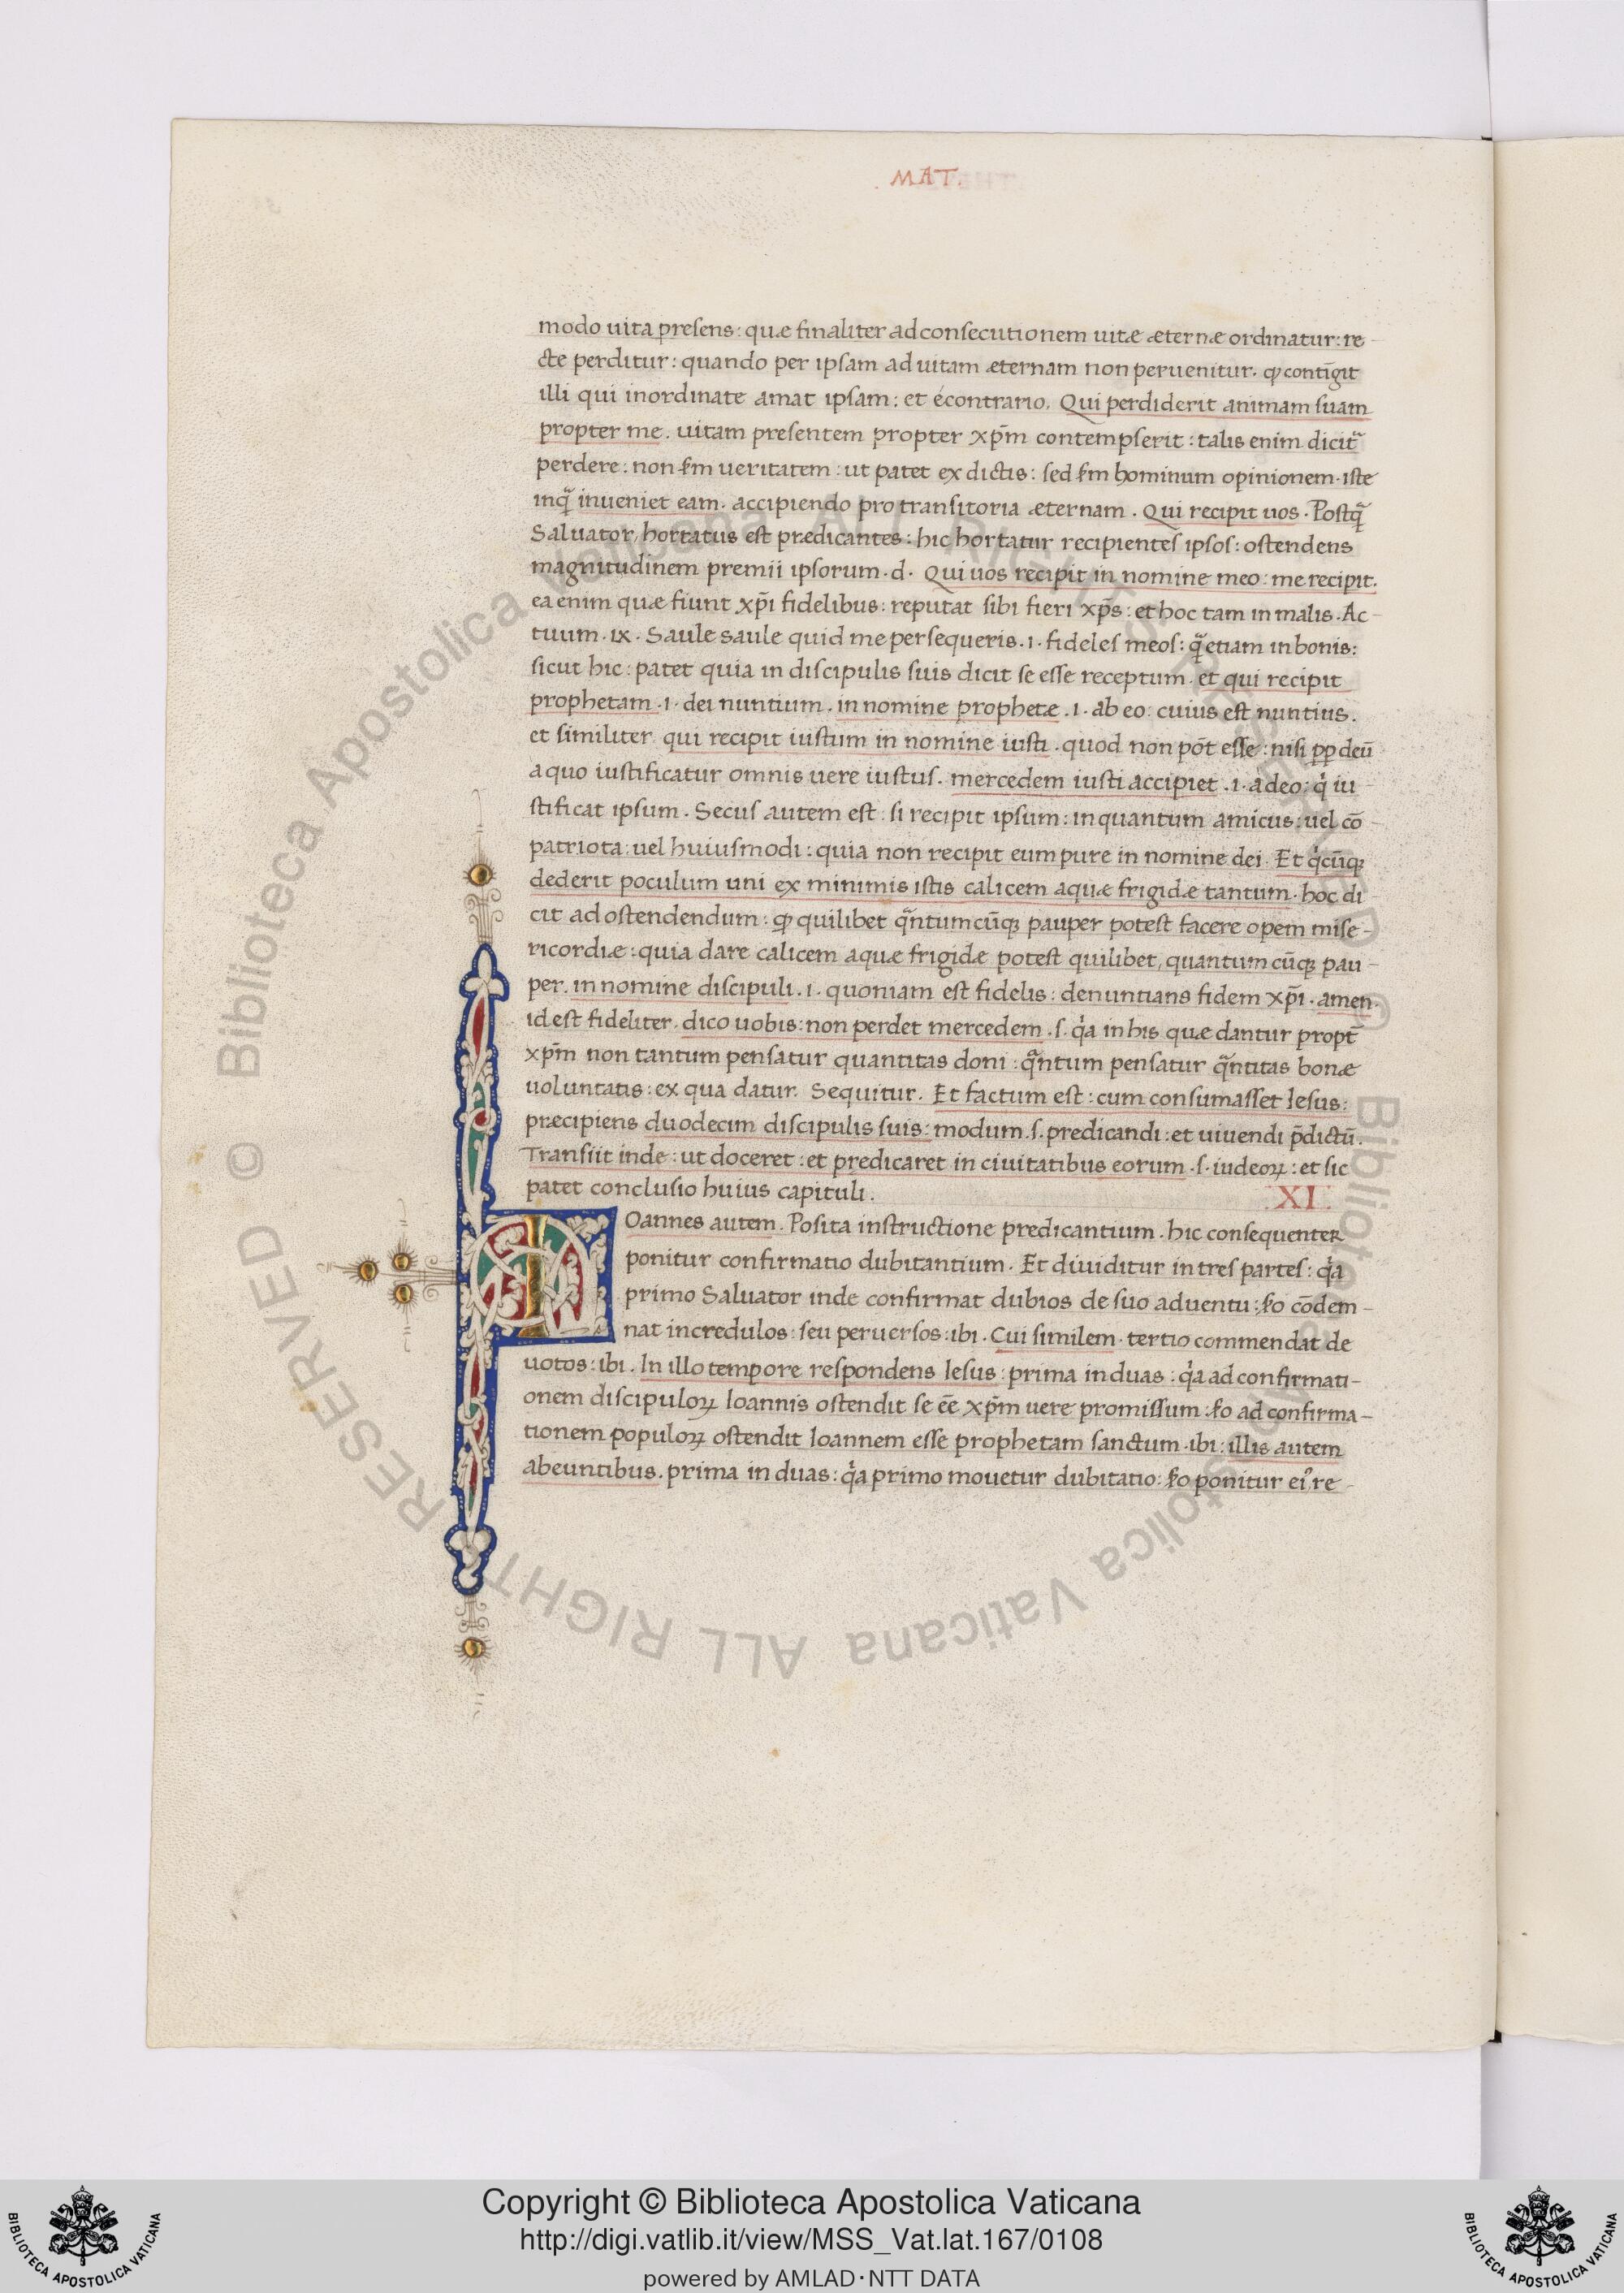 MAT.
modo uita presens: quæ finaliter ad consecutionem uitæ æternæ ordinatur: re-
cte perditur: quando per ipsam ad uitam æternam non peruenitur. ꝙ contīgit
illi qui inordinate amat ipsam: et écontrario. Qui perdiderit animam suam
propter me. uitam presentem propter xp̄m contempserit: talis enim dicit᷑
perdere: non ẜm ueritatem: ut patet ex dictis: sed ẜm hominum opinionem. iste
inqͣ̃ inueniet eam. accipiendo pro transitoria æternam. Qui recipit uos. Postqͣ̃
Saluator hortatus est prædicantes: hic hortatur recipientes ipsos: ostendens
magnitudinem premii ipsorum. d. Qui uos recipit in nomine meo: me recipit.
ea enim quæ fiunt xp̄i fidelibus: reputat sibi fieri xp̄s: et hoc tam in malis. Ac-
tuum. ix. Saule saule quid me persequeris. i. fideles meos: qͣ̃ etiam in bonis:
sicut hic: patet quia in discipulis suis dicit se esse receptum. et qui recipit
prophetam. i. dei nuntium. in nomine prophetæ. i. ab eo: cuius est nuntius.
et similiter qui recipit iustum in nomine iusti. quod non pōt esse: nisi ꝓꝑ deū
a quo iustificatur omnis uere iustus. mercedem iusti accipiet. i. a deo: qͥ iu-
stificat ipsum. Secus autem est: si recipit ipsum: in quantum amicus: uel cō-
patriota: uel huiusmodi: quia non recipit eum pure in nomine dei. Et qͥcūqꝫ
dederit poculum uni ex minimis istis calicem aquæ frigidæ tantum. hoc di-
cit ad ostendendum: ꝙ quilibet qͣ̃ntumcūqꝫ pauper potest facere opem mise-
ricordiæ: quia dare calicem aquæ frigidæ potest quilibet, quantumcūqꝫ pau-
per. in nomine discipuli. i. quoniam est fidelis: denuntians fidem xp̄i. amen.
id est fideliter. dico uobis: non perdet mercedem. s. qͥa in his quæ dantur propt̄
xp̄m non tantum pensatur quantitas doni: qͣ̃ntum pensatur qͣ̃ntitas bonæ
uoluntatis: ex qua datur. Sequitur. Et factum est: cum consumasset Iesus:
præcipiens duodecim discipulis suis: modum. s. predicandi: et uiuendi p̄dictū.
Transiit inde: ut doceret: et prędicaret in ciuitatibus eorum. s. iudeoꝝ: et sic
patet conclusio huius capituli.
.XI.
IOannes autem. Posita instructione predicantium. hic consequenter
ponitur confirmatio dubitantium. Et diuiditur in tres partes: qͥa
primo Saluator inde confirmat dubios de suo aduentu: ẜo cōdem-
nat incredulos: seu peruersos: ibi. Cui similem. tertio commendat de
uotos: ibi. In illo tempore respondens Iesus: prima in duas: qͥa ad confirmati-
onem discipuloꝝ Ioannis ostendit se ēē xp̄m uere promissum: ẜo ad confirma-
tionem populoꝝ ostendit Ioannem esse prophetam sanctum. ibi: illis autem
abeuntibus. prima in duas: qͥa primo mouetur dubitatio: ẜo ponitur eiꝰ re-
Copyright © Biblioteca Apostolica Vaticana
http://digi.vatlib.it/view/MSS_Vat.lat.167/0108
powered by AMLAD·NTT DATA
BIBLIOTECA APOSTOLICA VATICANA
BIBLIOTECA APOSTOLICA VATICANA
© Biblioteca Apostolica Vaticana ALL RIGHT RESERVED
© Biblioteca Apostolica Vaticana ALL RIGHT RESERVED